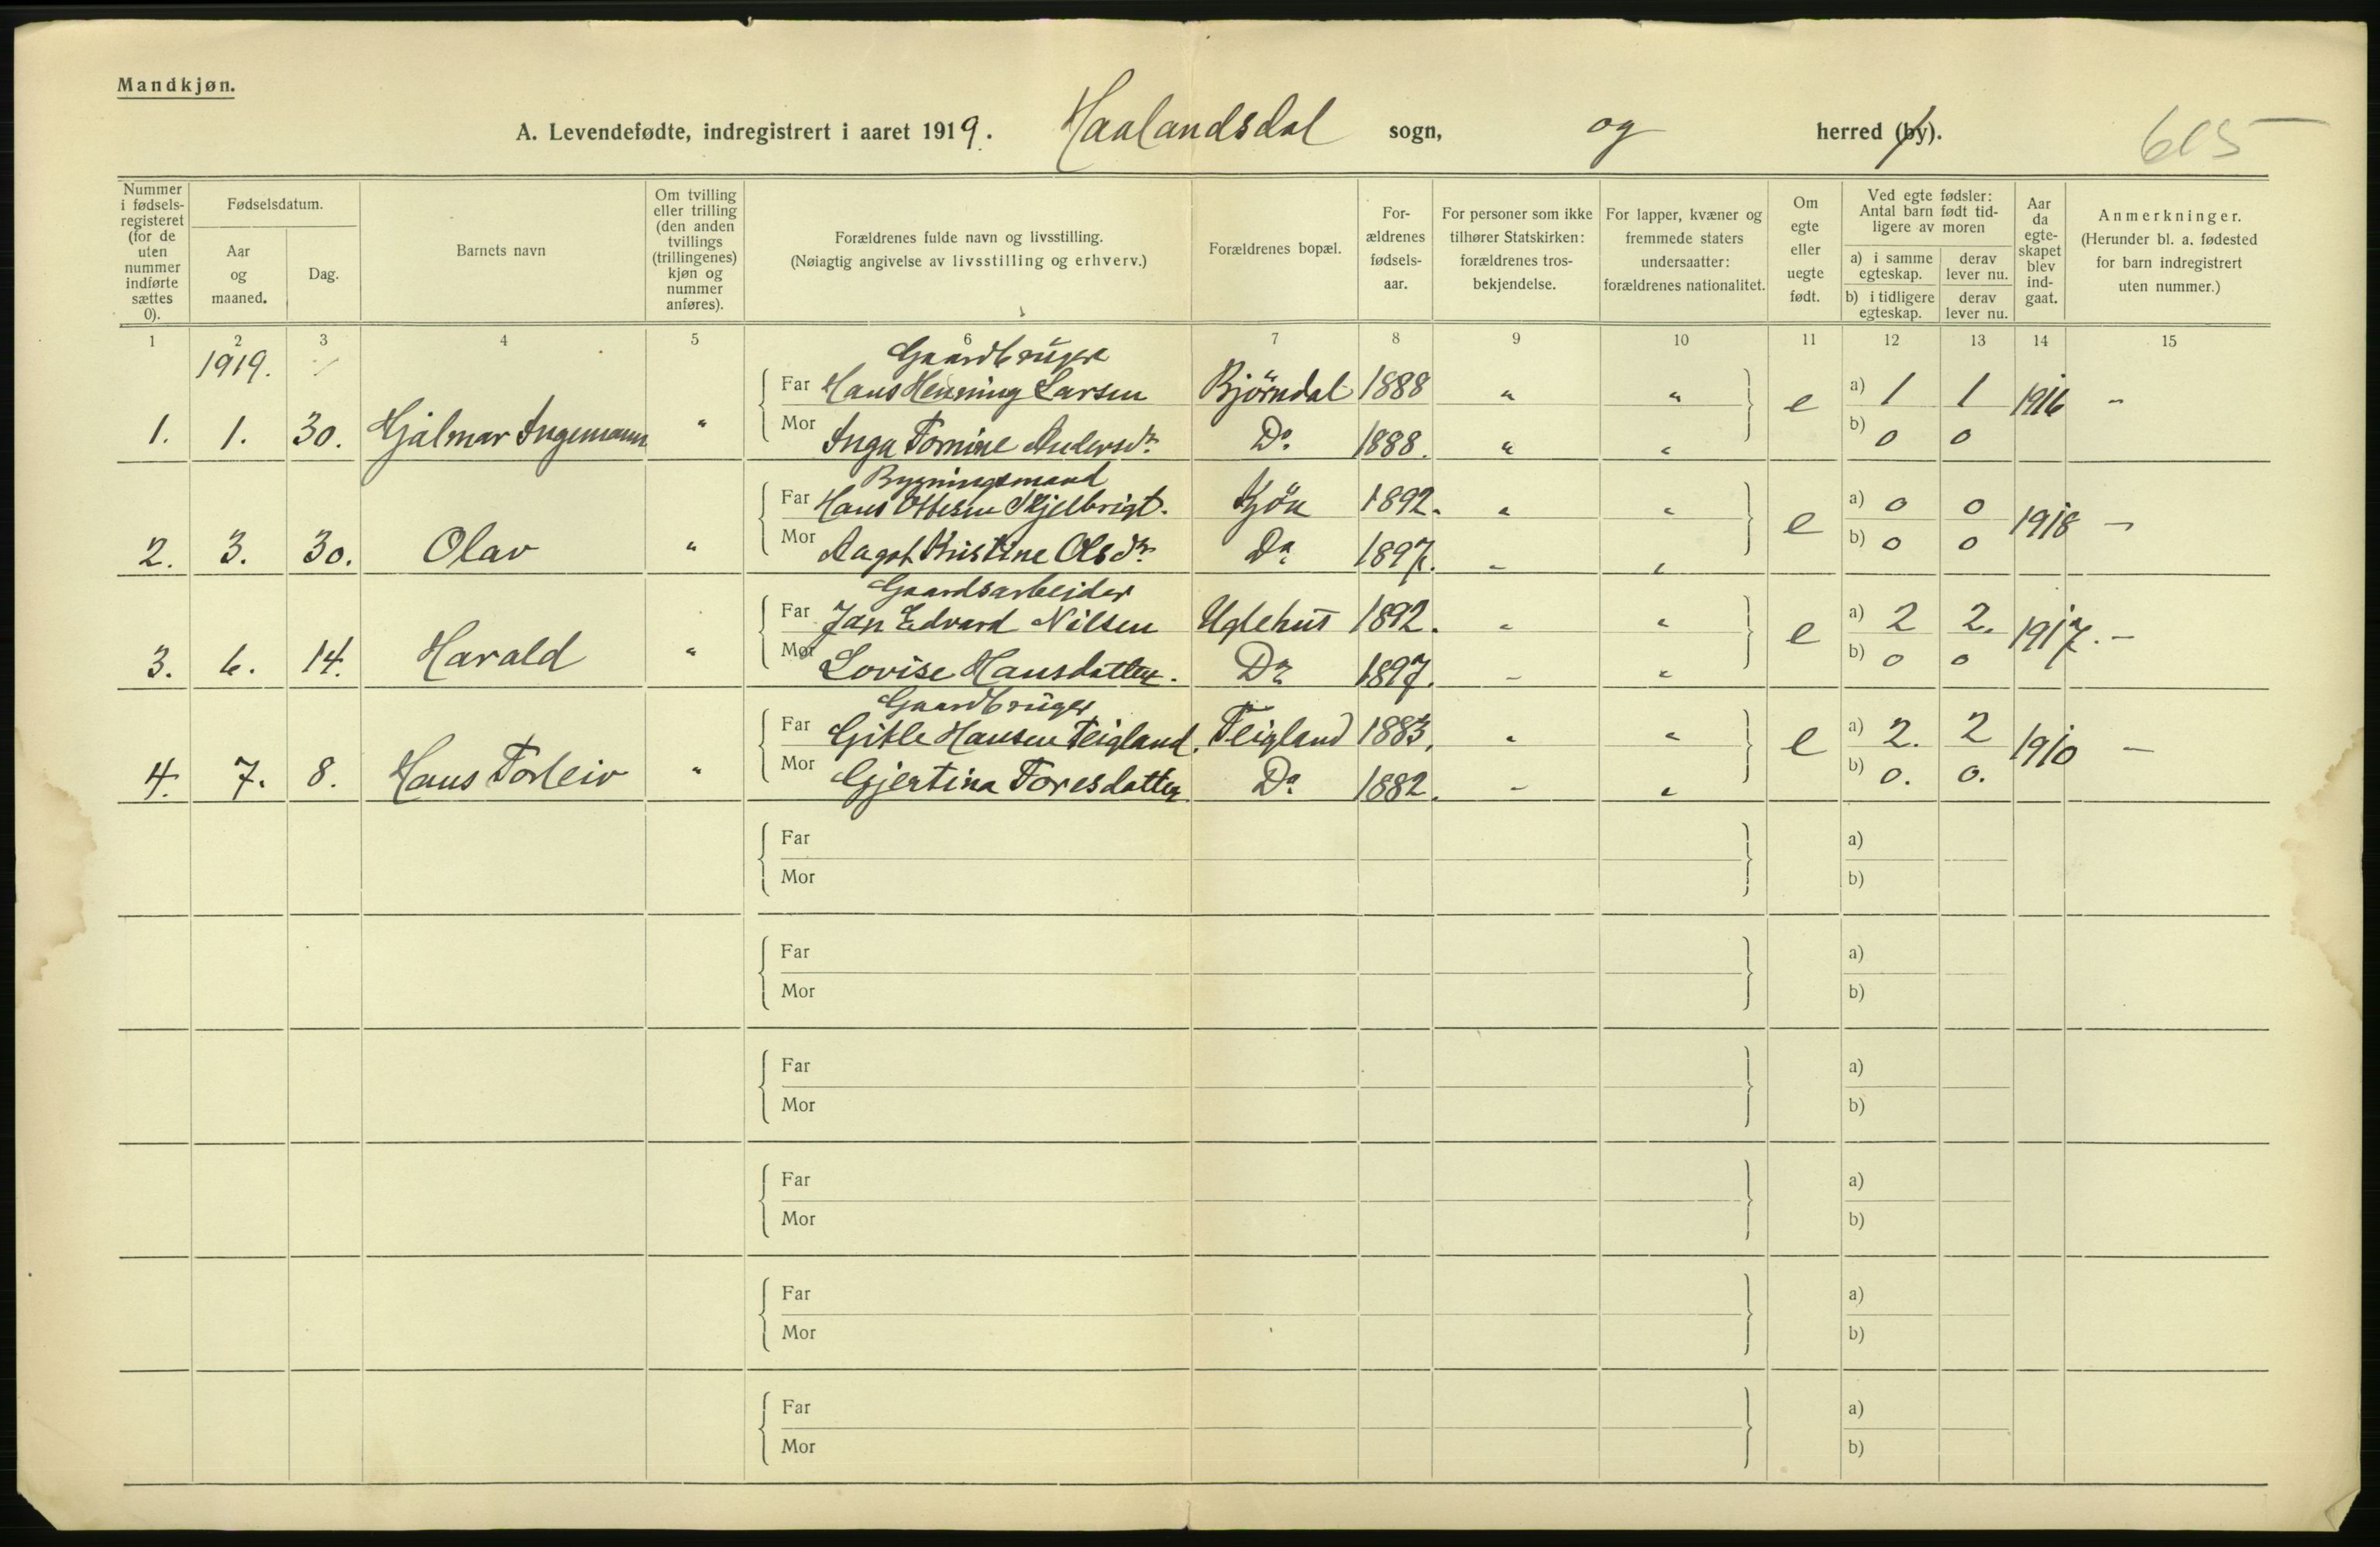 Mandkjøn.
A. Levendefødte, indregistrert i aaret 1919. Haalandsdal sogn, og herred (by).
605
Nummer i fødsels-registeret (for de uten nummer indførte sættes 0).
Fødselsdatum.
Aar og maaned.
Dag.
Barnets navn
Om tvilling eller trilling (den anden tvillings (trillingenes) kjøn og nummer anføres).
Forældrenes fulde navn og livsstilling.
(Nøiagtig angivelse av livsstilling og erhverv.)
Forældrenes bopæl.
For-ældrenes fødsels-aar.
For personer som ikke tilhører Statskirken: forældrenes tros-bekjendelse.
For lapper, kvæner og fremmede staters undersaatter: forældrenes nationalitet.
Om egte eller uegte født.
Ved egte fødsler: Antal barn født tid-ligere av moren
a) i samme egteskap.
derav lever nu.
b) i tidligere egteskap.
derav lever nu.
Aar da egte-skapet blev ind-gaat.
Anmerkninger.
(Herunder bl. a. fødested for barn indregistrert uten nummer.)
1 2 3 4 5 6 7 8 9 10 11 12 13 14 15
1919.
Gaardbruger
Far Hans Henning Larsen Bjørndal 1888 " " e a) 1 1 1916 "
1. 1. 30. Hjalmar Ingemann "
Mor Inga Tomine Andersdr. Do. 1888. " " b) 0 0
Bygningsmand
Far Hans Ottesen Skjelbrigt. Kjøn 1892. " " e a) 0 0 1918 -
2. 3. 30. Olav "
Mor Aagot Kristine Olsdr. Do. 1897. " " b) 0 0
Gaardsarbeider
Far Jan Edvard Nilsen Uglehus 1892. " " e a) 2 2. 1917. -
3. 6. 14. Harald "
Mor Lovise Hansdatter. Do. 1897. - " b) 0 0
Gaardbruger
Far Gitle Hansen Teigland. Teigland 1883. " " e a) 2. 2 1910 -
4. 7. 8. Hans Torleiv "
Mor Gjertina Toresdatter Do. 1882. - " b) 0. 0.
Far a)
Mor b)
Far a)
Mor b)
Far a)
Mor b)
Far a)
Mor b)
Far a)
Mor b)
Far a)
Mor b)